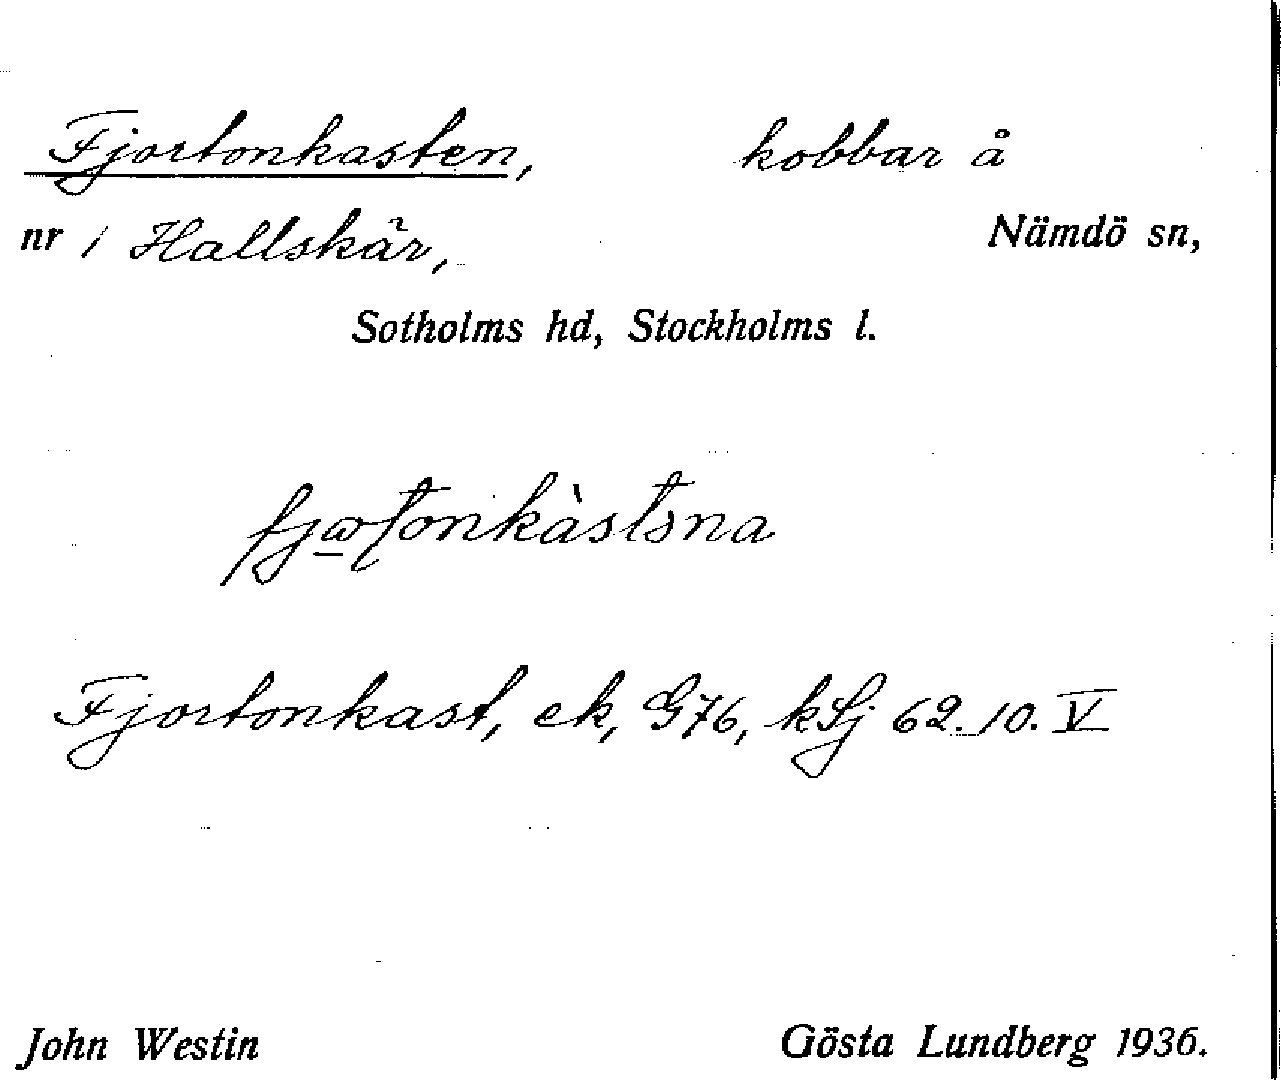 Fjortonkasten, kobbar å
nr 1 Hallskär, Nämdö sn,
Sotholms hd, Stockholms l.
Fjortonkast, ek, G76, kSj 62.10.V
John Westin Gösta Lundberg 1936.